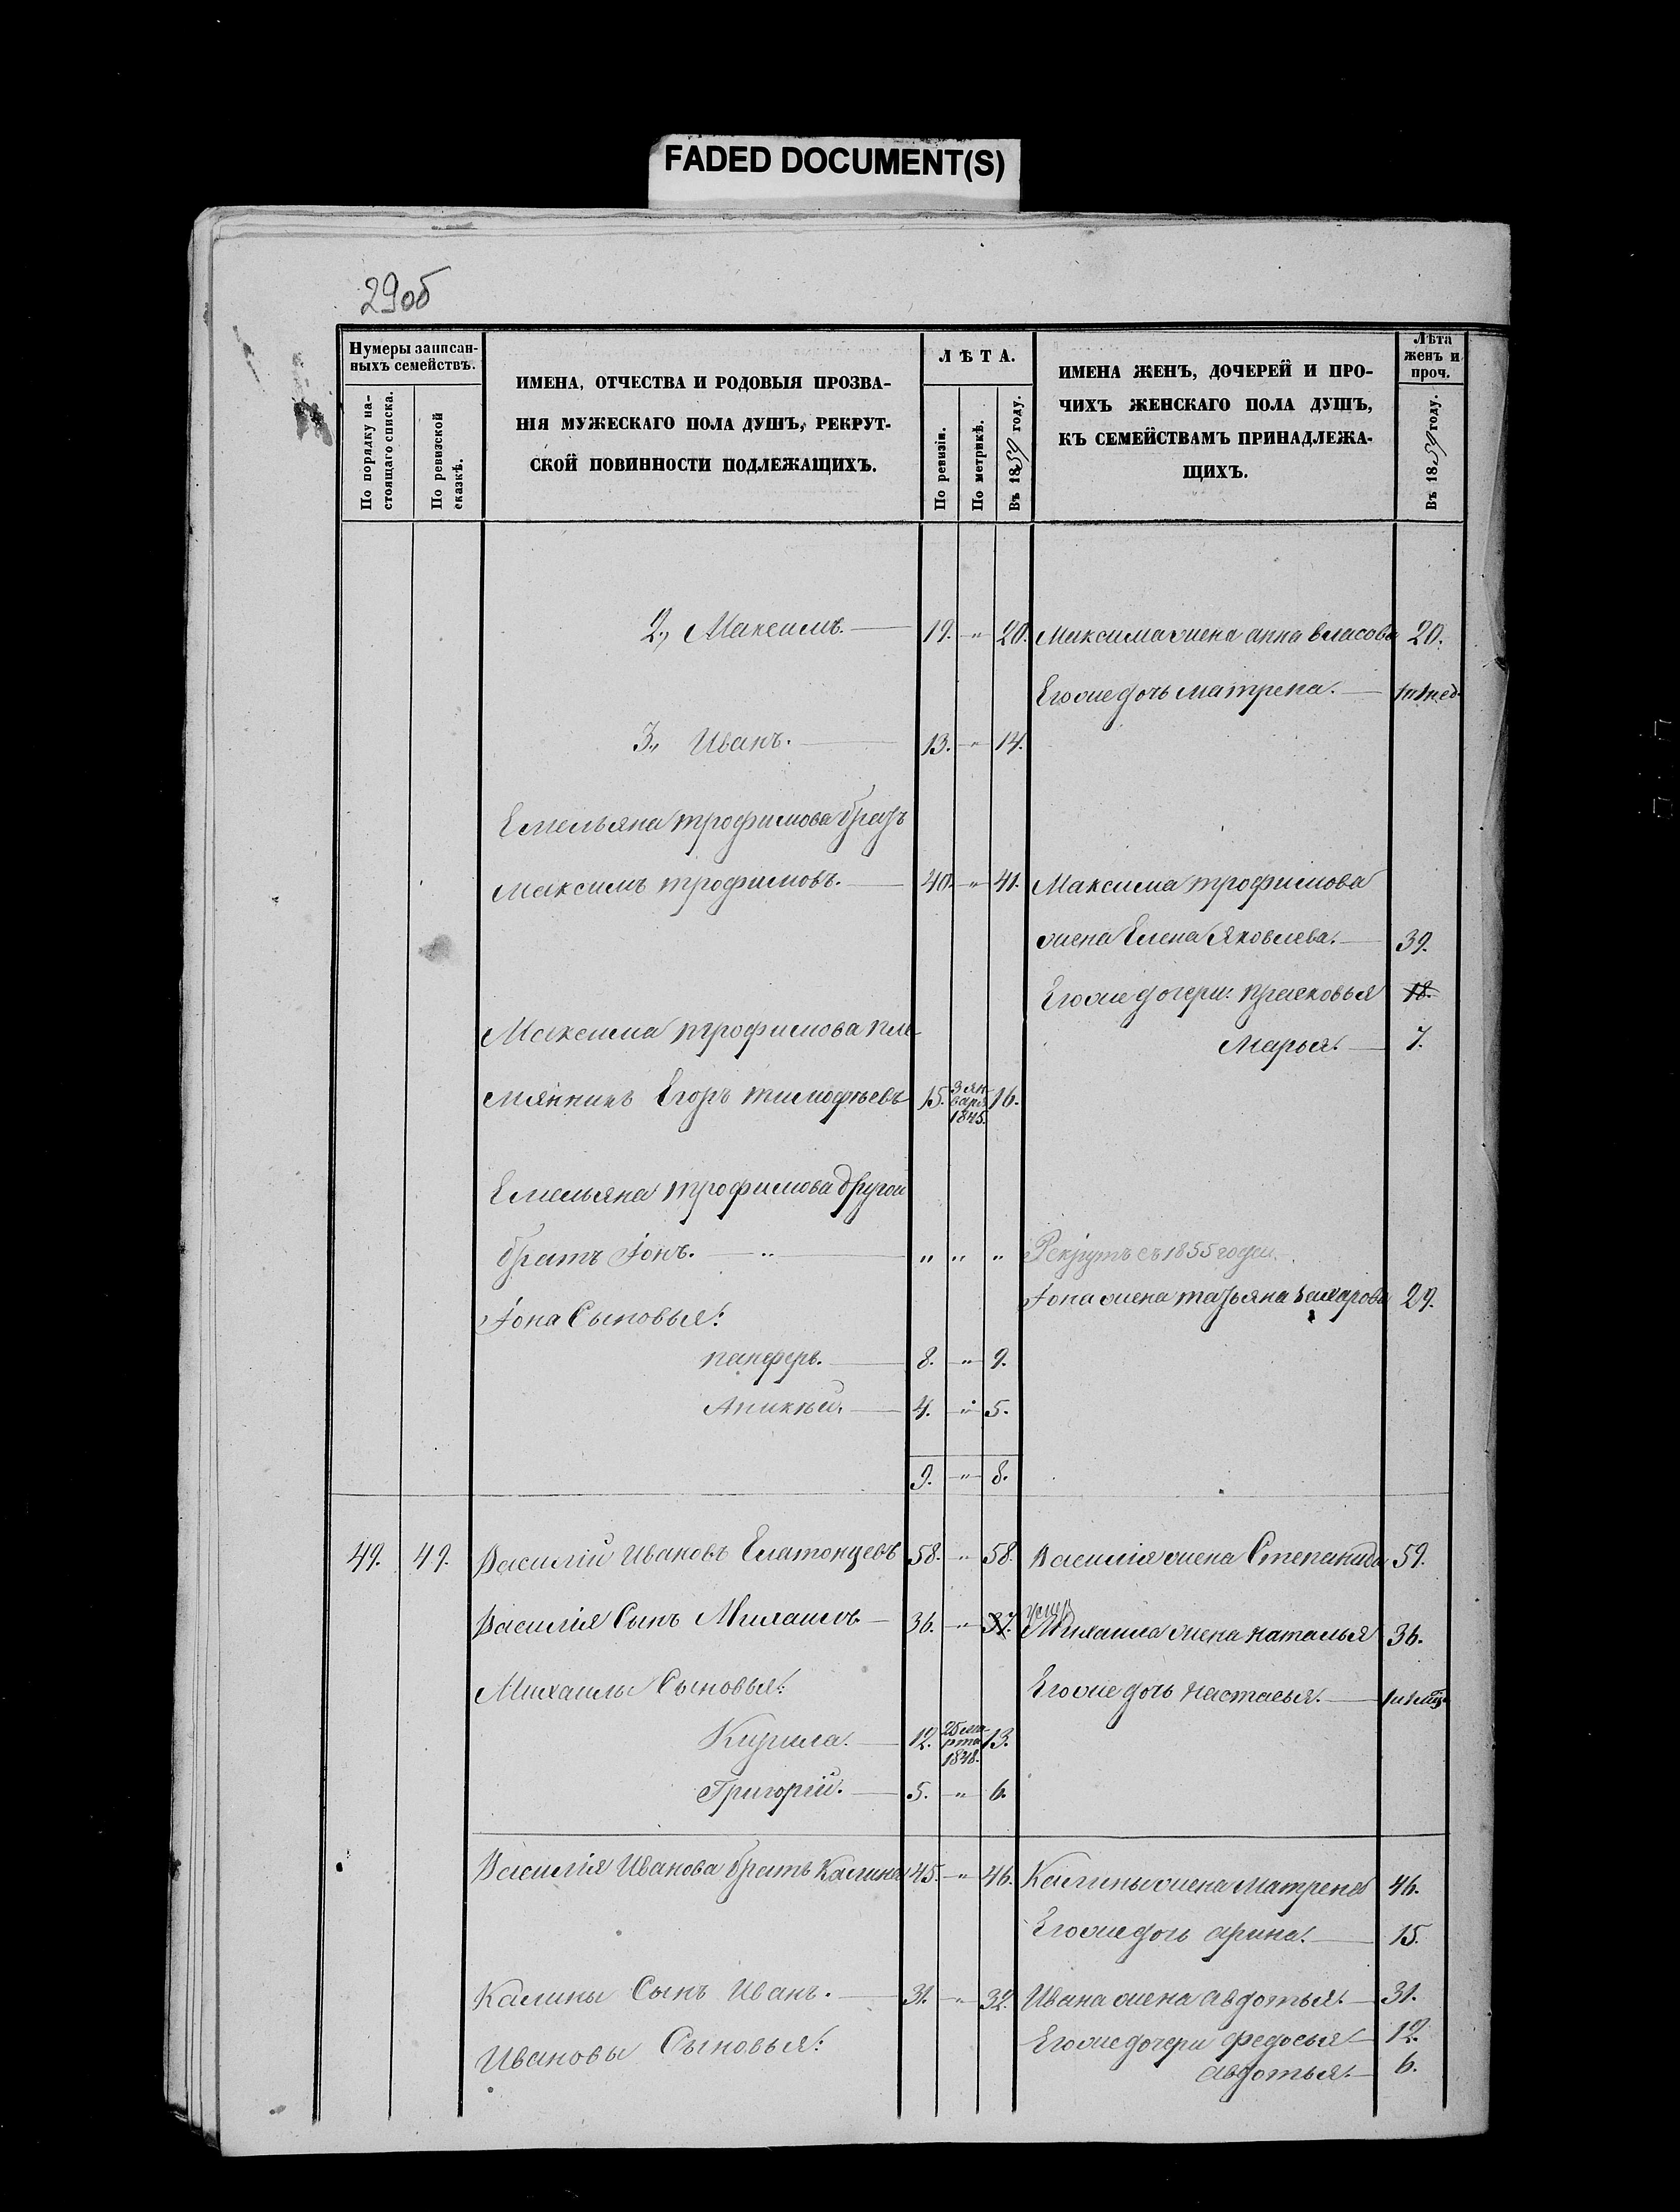 FADED DOCUMENT(S)
29об
Нумеры записан-
ныхъ семействъ.
По порядку на-
стоящаго списка.
По ревизской
сказкѣ.
ИМЕНА, ОТЧЕСТВА И РОДОВЫЯ ПРОЗВА-
НІЯ МУЖЕСКАГО ПОЛА ДУШЪ, РЕКРУТ-
СКОЙ ПОВИННОСТИ ПОДЛЕЖАЩИХЪ.
ЛѢТА.
По ревизіи.
По метрикѣ.
Въ 1859 году.
ИМЕНА ЖЕНЪ, ДОЧЕРЕЙ И ПРО-
ЧИХЪ ЖЕНСКАГО ПОЛА ДУШЪ,
КЪ СЕМЕЙСТВАМЪ ПРИНАДЛЕЖА-
ЩИХЪ.
Лѣта
женъ и
проч.
Въ 1859 году.
2., Максимъ. 19. " 20. Максима жена анна власова 20.
Его же дочь матрена.
3., Иванъ. 13. " 14.
Емельяна трофимова братъ
максимъ трофимовъ. 40. " 41. Максима трофимова
жена Елена Яковлева. 39.
Его же дочери: прасковья 18.
Максима трофимова пле-
Марья. 7.
мянникъ Егоръ тимофѣевъ 15. 3 ян-
варя
1845. 16.
Емельяна трофимова другой
братъ Іонъ. " " " " Рекрутъ съ 1855 года.
Іона жена татьяна захарова 29.
Іона Сыновья:
панферъ. 8. " 9.
Аникѣй. 4. " 5.
9. " 8.
49. 49. Василій Ивановъ Елатонцевъ 58. " 58. Василія жена Степанида 59.
Василія Сынъ Михаилъ 36. " 37. умер
Михаила жена наталья 36.
Михаилы Сыновья: Его же дочь настасья.
Кирила. 12. 25 ма-
рта
1848. 13.
Григорій. 5. " 6.
Василія Иванова братъ Калина 45. " 46. Калины жена матрена 46.
Его же дочь арина. 15.
Калины Сынъ Иванъ. 31. " 32. Ивана жена авдотья. 31.
Ивановы Сыновья: Его же дочери федосья 12.
авдотья. 6.